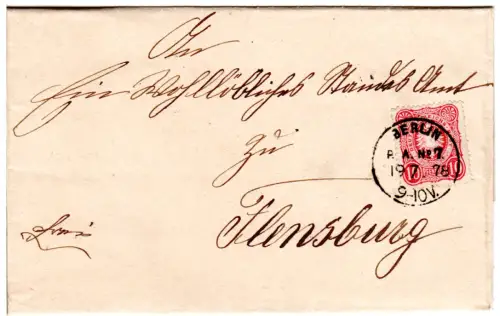 An
Ein Wohllöbliches Standes Amt
zu
Flensburg
frei
BERLIN
P. A. No 7.
19 7 78
9-10V.
10